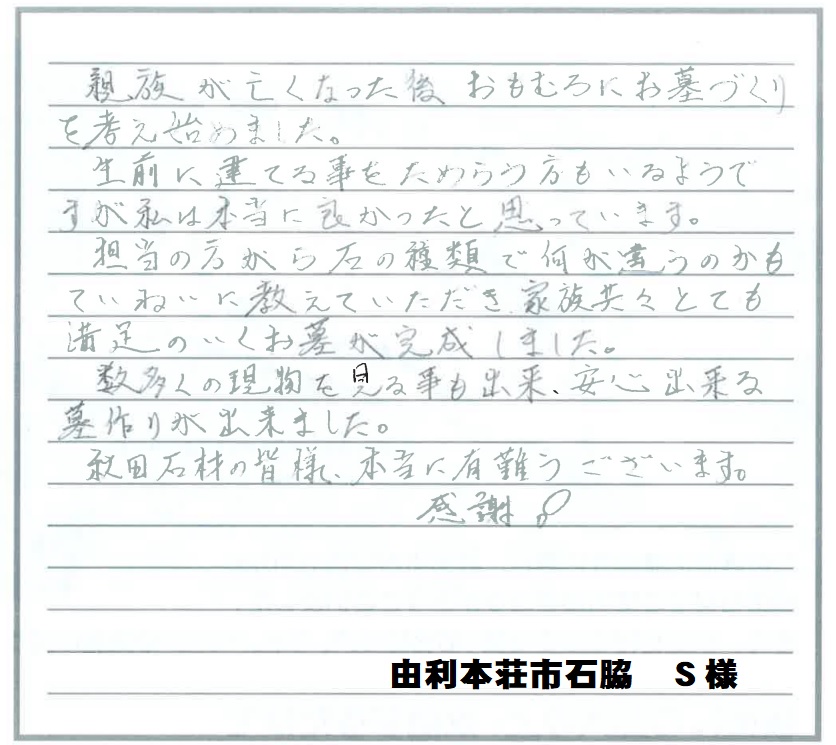 親族が亡くなった後おもむろにお墓づくり
を考え始めました。
生前に建てる事をためらう方もいるようで
すが私は本当に良かったと思っています。
担当の方から石の種類で何が違うのかも
ていねいに教えていただき家族共々とても
満足のいくお墓が完成しました。
数多くの現物を見る事も出来、安心出来る
墓作りが出来ました。
秋田石材の皆様、本当に有難うございます。
感謝
由利本荘市石脇　S様